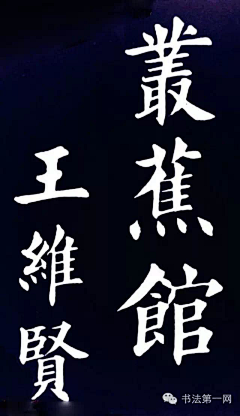 叢蕉館
王維賢
书法第一网